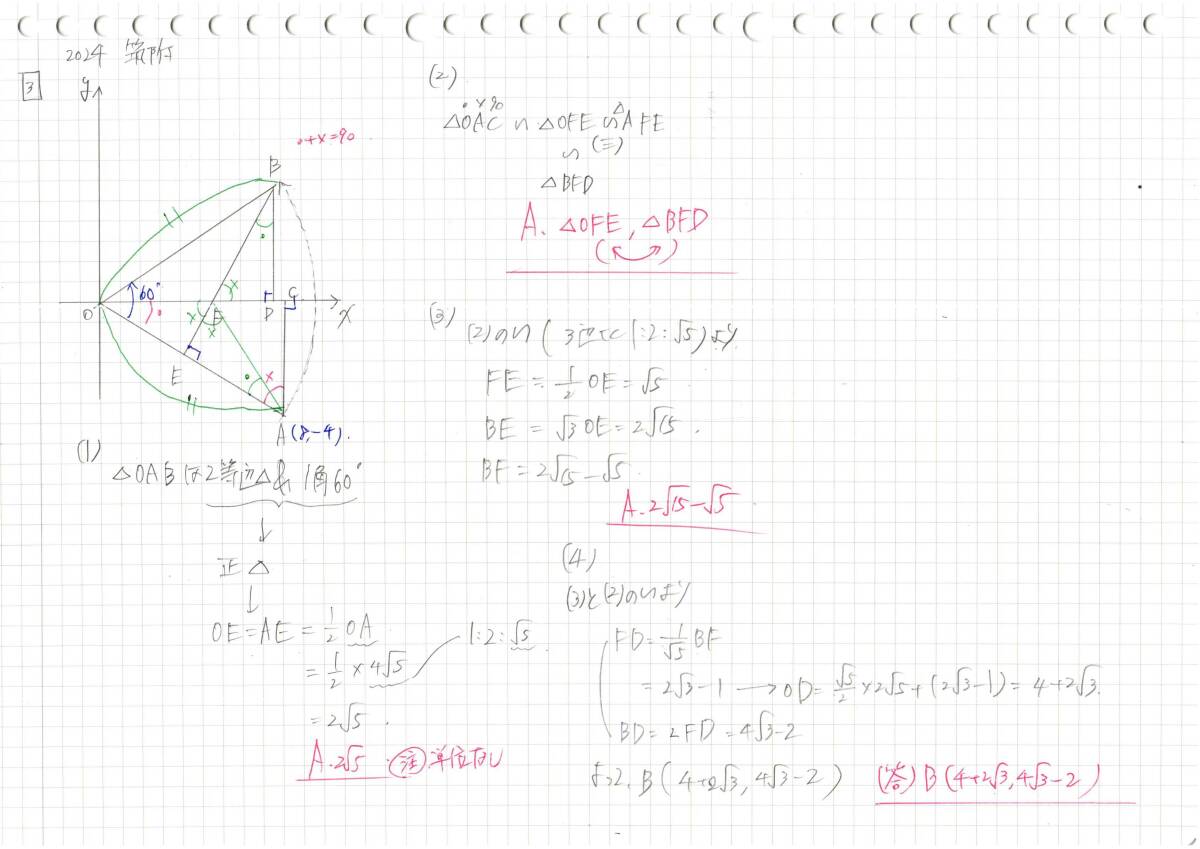 2024 筑附
3
y
・+x=90
B
60°
O
F
D
C
x
E
A(8,-4).
(1)
△OABは2等辺△& 1角60°
↓
正△
↓
OE=AE=1/2 OA
=1/2×4√5
1:2:√5
=2√5.
A.2√5 注 単位なし
(2)
・ × 90
△OAC ∽ △OFE ∽ △AFE
(≡)
∽
△BFD
A. △OFE, △BFD
(3)
(2)の∽(3辺比1:2:√5)より
FE=1/2 OE=√5
BE=√3 OE=2√15.
BF=2√15-√5
A.2√15-√5
(4)
(3)と(2)の∽より
FD=1/√5 BF
=2√3-1 → OD=√5/2×2√5+(2√3-1)=4+2√3.
BD=2FD=4√3-2
よって、B(4+2√3, 4√3-2)
(答)B(4+2√3, 4√3-2)